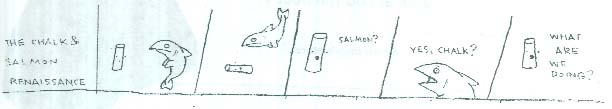 THE CHALK &
SALMON
RENAISSANCE
SALMON?
YES, CHALK?
WHAT
ARE
WE
DOING?